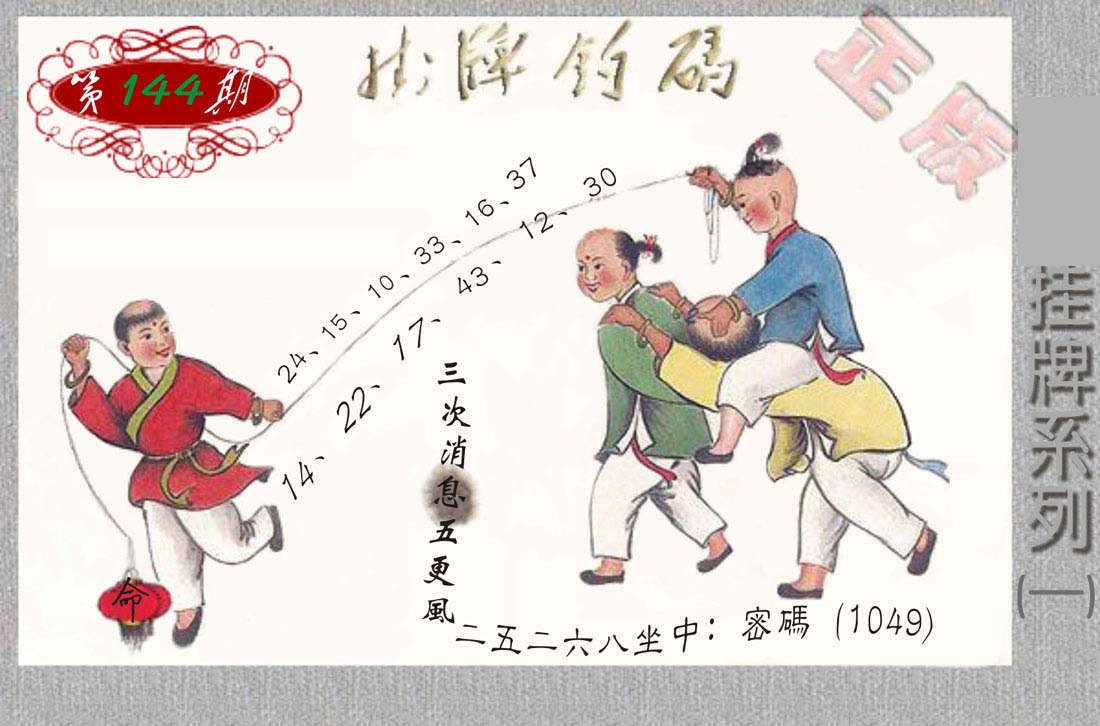 第144期
掛牌釣碼
正版
24、15、10、33、16、37
14、22、17、43、12、30
三次消息五更風
命
二五二六八坐中：密碼（1049）
挂牌系列(一)